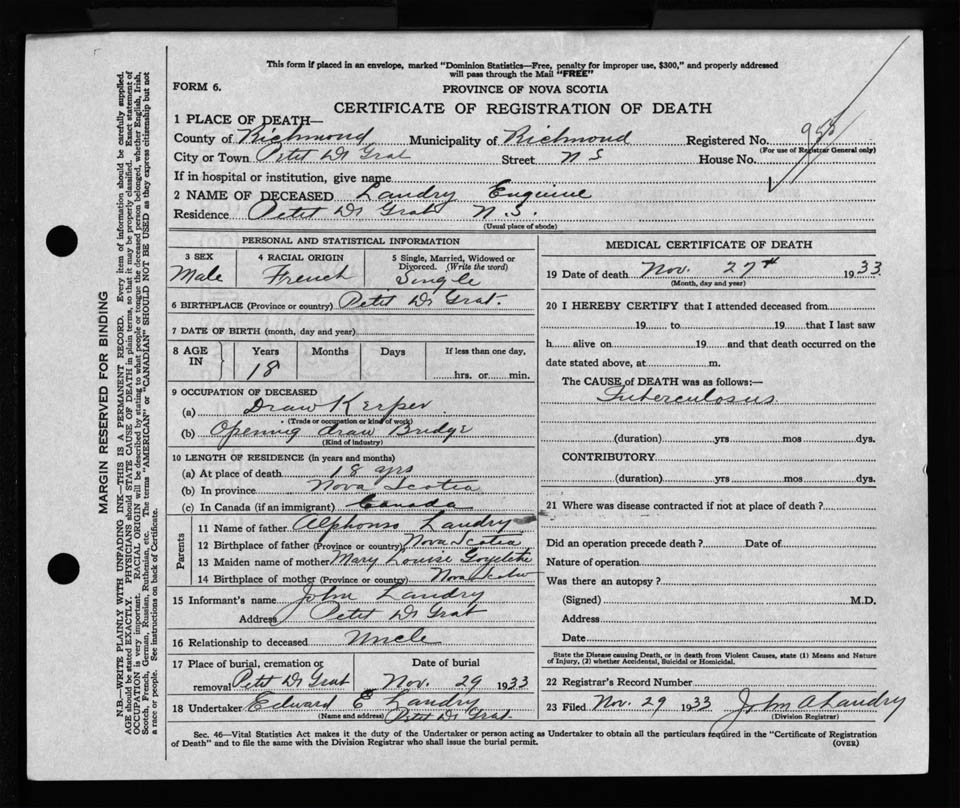 This form if placed in an envelope, marked "Dominion Statistics—Free, penalty for improper use, $300," and properly addressed
will pass through the Mail "FREE"
FORM 6.
PROVINCE OF NOVA SCOTIA
CERTIFICATE OF REGISTRATION OF DEATH
1 PLACE OF DEATH—
County of Richmond Municipality of Richmond Registered No.
(For use of Registrar General only)
City or Town Petit De Grat Street N S House No.
If in hospital or institution, give name
2 NAME OF DECEASED Landry
Residence Petit De Grat N. S.
(Usual place of abode)
PERSONAL AND STATISTICAL INFORMATION
3 SEX 4 RACIAL ORIGIN 5 Single, Married, Widowed or
Divorced. (Write the word)
Male French Single
6 BIRTHPLACE (Province or country) Petit De Grat.
7 DATE OF BIRTH (month, day and year)
8 AGE IN Years Months Days If less than one day,
18 hrs. or min.
9 OCCUPATION OF DECEASED
(a) Draw Keeper
(Trade or occupation or kind of work)
(b) Opening draw Bridge
(Kind of industry)
10 LENGTH OF RESIDENCE (in years and months)
(a) At place of death 18 yrs
(b) In province Nova Scotia
(c) In Canada (if an immigrant) Canada
Parents
11 Name of father Alphonso Landry
12 Birthplace of father (Province or country) Nova Scotia
13 Maiden name of mother Mary Louise
14 Birthplace of mother (Province or country) Nova Scotia
15 Informant's name John Landry
Address Petit De Grat
16 Relationship to deceased Uncle
17 Place of burial, cremation or Date of burial
removal Petit De Grat Nov. 29 1933
18 Undertaker Edward E Landry
(Name and address) Petit De Grat
MEDICAL CERTIFICATE OF DEATH
19 Date of death Nov. 27th 1933
(Month, day and year)
20 I HEREBY CERTIFY that I attended deceased from
19 to 19 that I last saw
h alive on 19 and that death occurred on the
date stated above, at m.
The CAUSE OF DEATH was as follows:—
Tuberculosus
(duration) yrs mos dys.
CONTRIBUTORY
(duration) yrs. mos dys.
21 Where was disease contracted if not at place of death?
Did an operation precede death? Date of
Nature of operation
Was there an autopsy?
(Signed) M.D.
Address
Date
State the Disease causing Death, or in death from Violent Causes, state (1) Means and Nature
of Injury, (2) whether Accidental, Suicidal or Homicidal.
22 Registrar's Record Number
23 Filed Nov. 29 1933 John A Landry
(Division Registrar)
Sec. 46—Vital Statistics Act makes it the duty of the Undertaker or person acting as Undertaker to obtain all the particulars required in the "Certificate of Registration
of Death" and to file the same with the Division Registrar who shall issue the burial permit. (OVER)
MARGIN RESERVED FOR BINDING
N.B.—WRITE PLAINLY WITH UNFADING INK—THIS IS A PERMANENT RECORD. Every item of information should be carefully supplied.
AGE should be stated EXACTLY. PHYSICIANS should STATE CAUSE OF DEATH in plain terms, so that it may be properly classified. Exact statement of
OCCUPATION is very important. RACIAL ORIGIN will be described by stating to what people or tongue the deceased person belonged, whether English, Irish,
Scotch, French, German, Russian, Ruthenian, etc. The terms "AMERICAN" or "CANADIAN" SHOULD NOT BE USED as they express citizenship but not
a race or people. See instructions on back of Certificate.